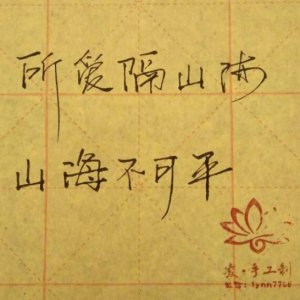 所爱隔山海
山海不可平
手工制